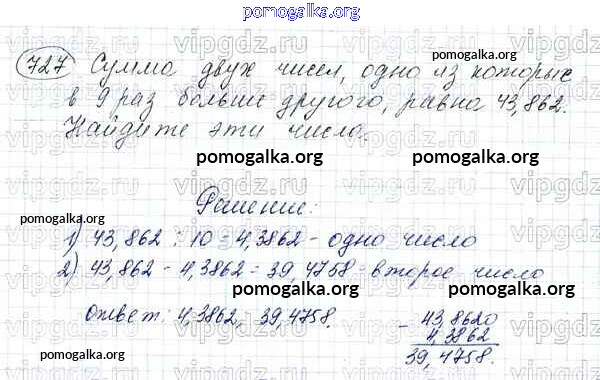 pomogalka.org
727 Сумма двух чисел, одно из которых
в 9 раз больше другого, равна 43,862.
Найдите эти числа.
pomogalka.org pomogalka.org
Решение:
1) 43,862 : 10 = 4,3862 - одно число
2) 43,862 - 4,3862 = 39,4758 - второе число
Ответ: 4,3862, 39,4758.
- 43,8620
4,3862
39,4758.
pomogalka.org
pomogalka.org
pomogalka.org
pomogalka.org
pomogalka.org
pomogalka.org
vipgdz.ru